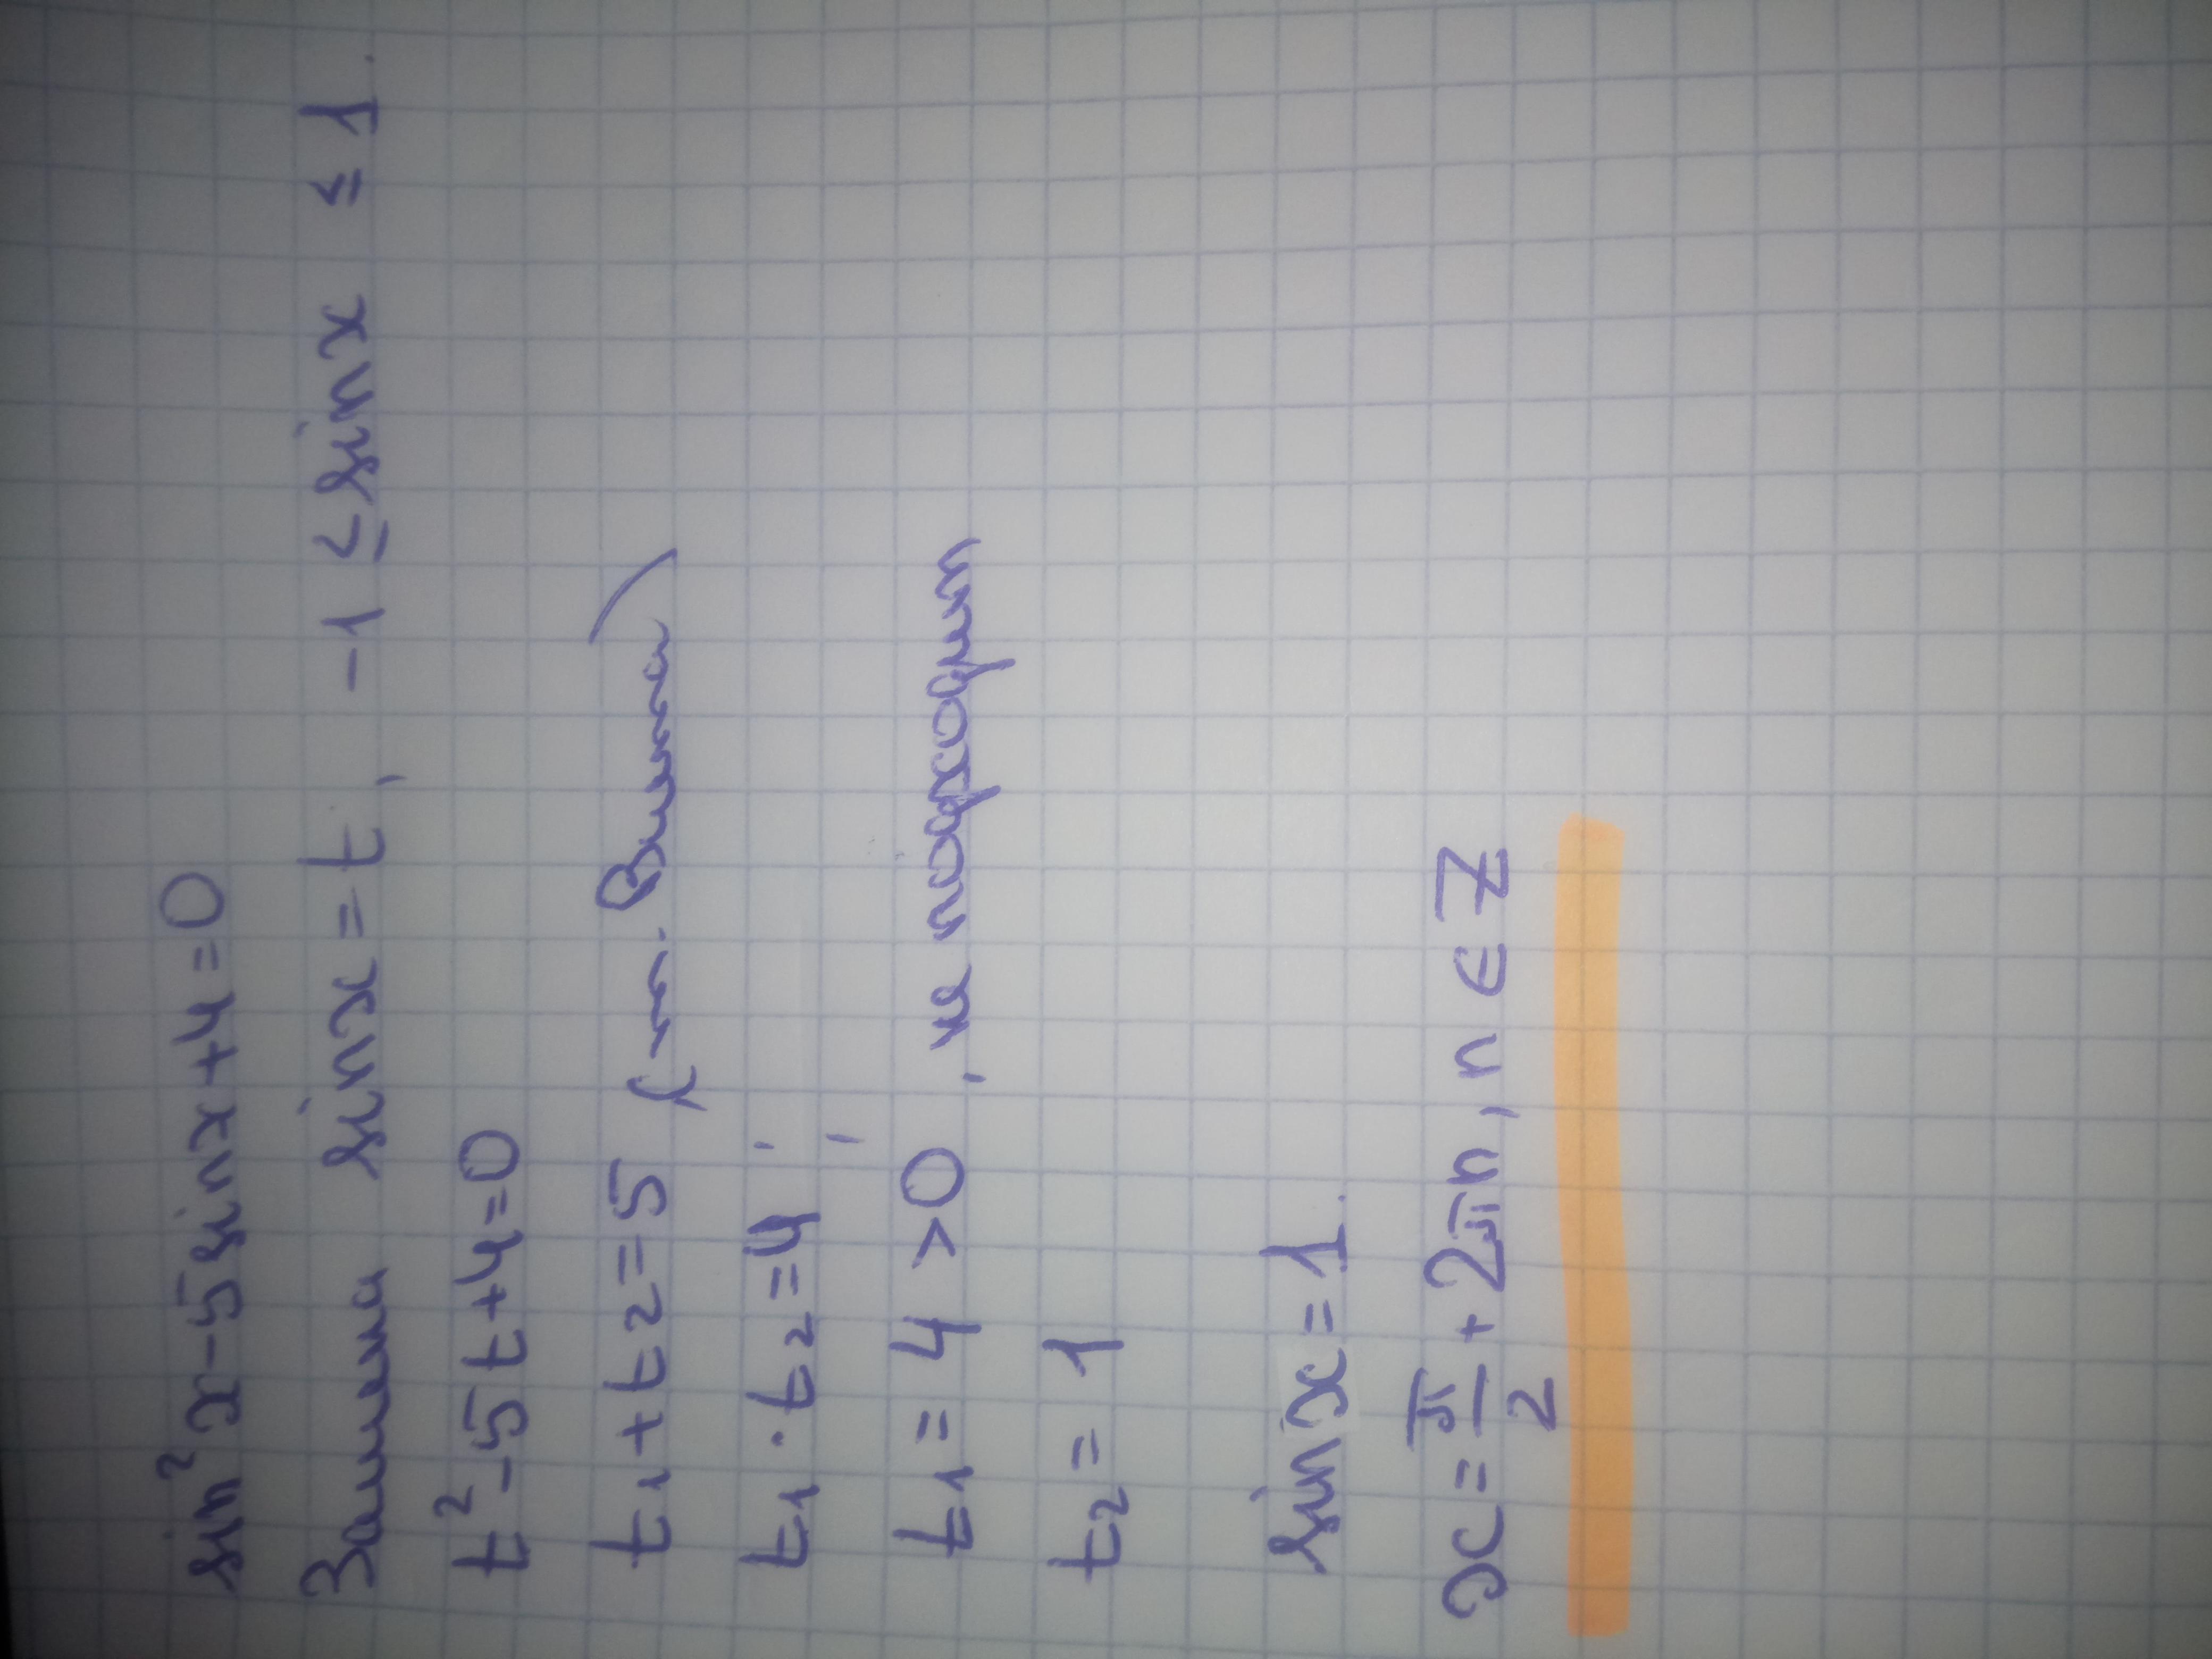 sin²x-5sinx+4=0
Замена sinx=t, -1≤sinx≤1.
t²-5t+4=0
t₁+t₂=5 (т. Виета)
t₁·t₂=4
t₁=4>0, не подходит
t₂=1
sinx=1.
x=π/2+2πn, n∈Z